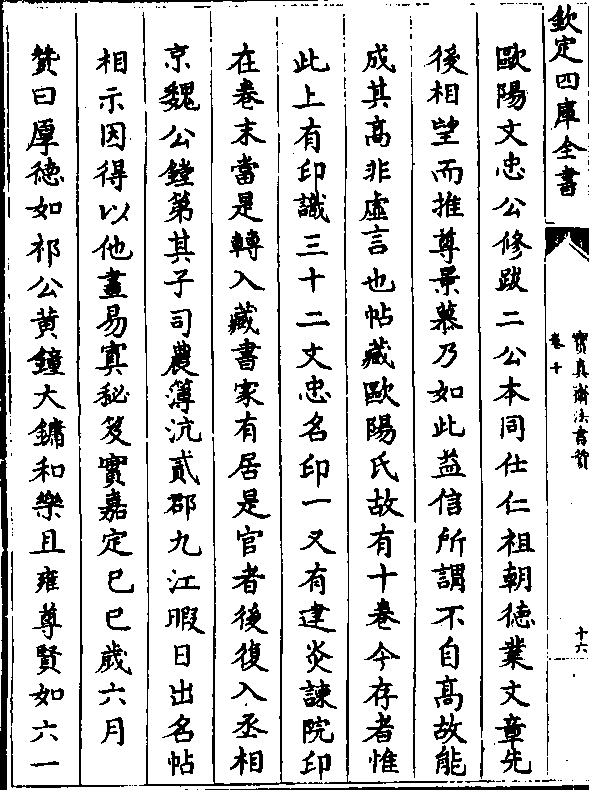 欽定四庫全書
寶真齋法書贊
卷十
十六
歐陽文忠公修跋二公本同仕仁祖朝徳業文章先
後相望而推尊景慕乃如此益信所謂不自高故能
成其高非虛言也帖藏歐陽氏故有十卷今存者惟
此上有印識三十二文忠名印一又有建炎諫院印
在卷末當是轉入藏書家有居是官者後復入丞相
京魏公鏜第其子司農簿沆貳郡九江暇日出名帖
相示因得以他畫易寘秘笈實嘉定己巳歲六月
贊曰厚徳如祁公黃鐘大鏞和樂且雍尊賢如六一